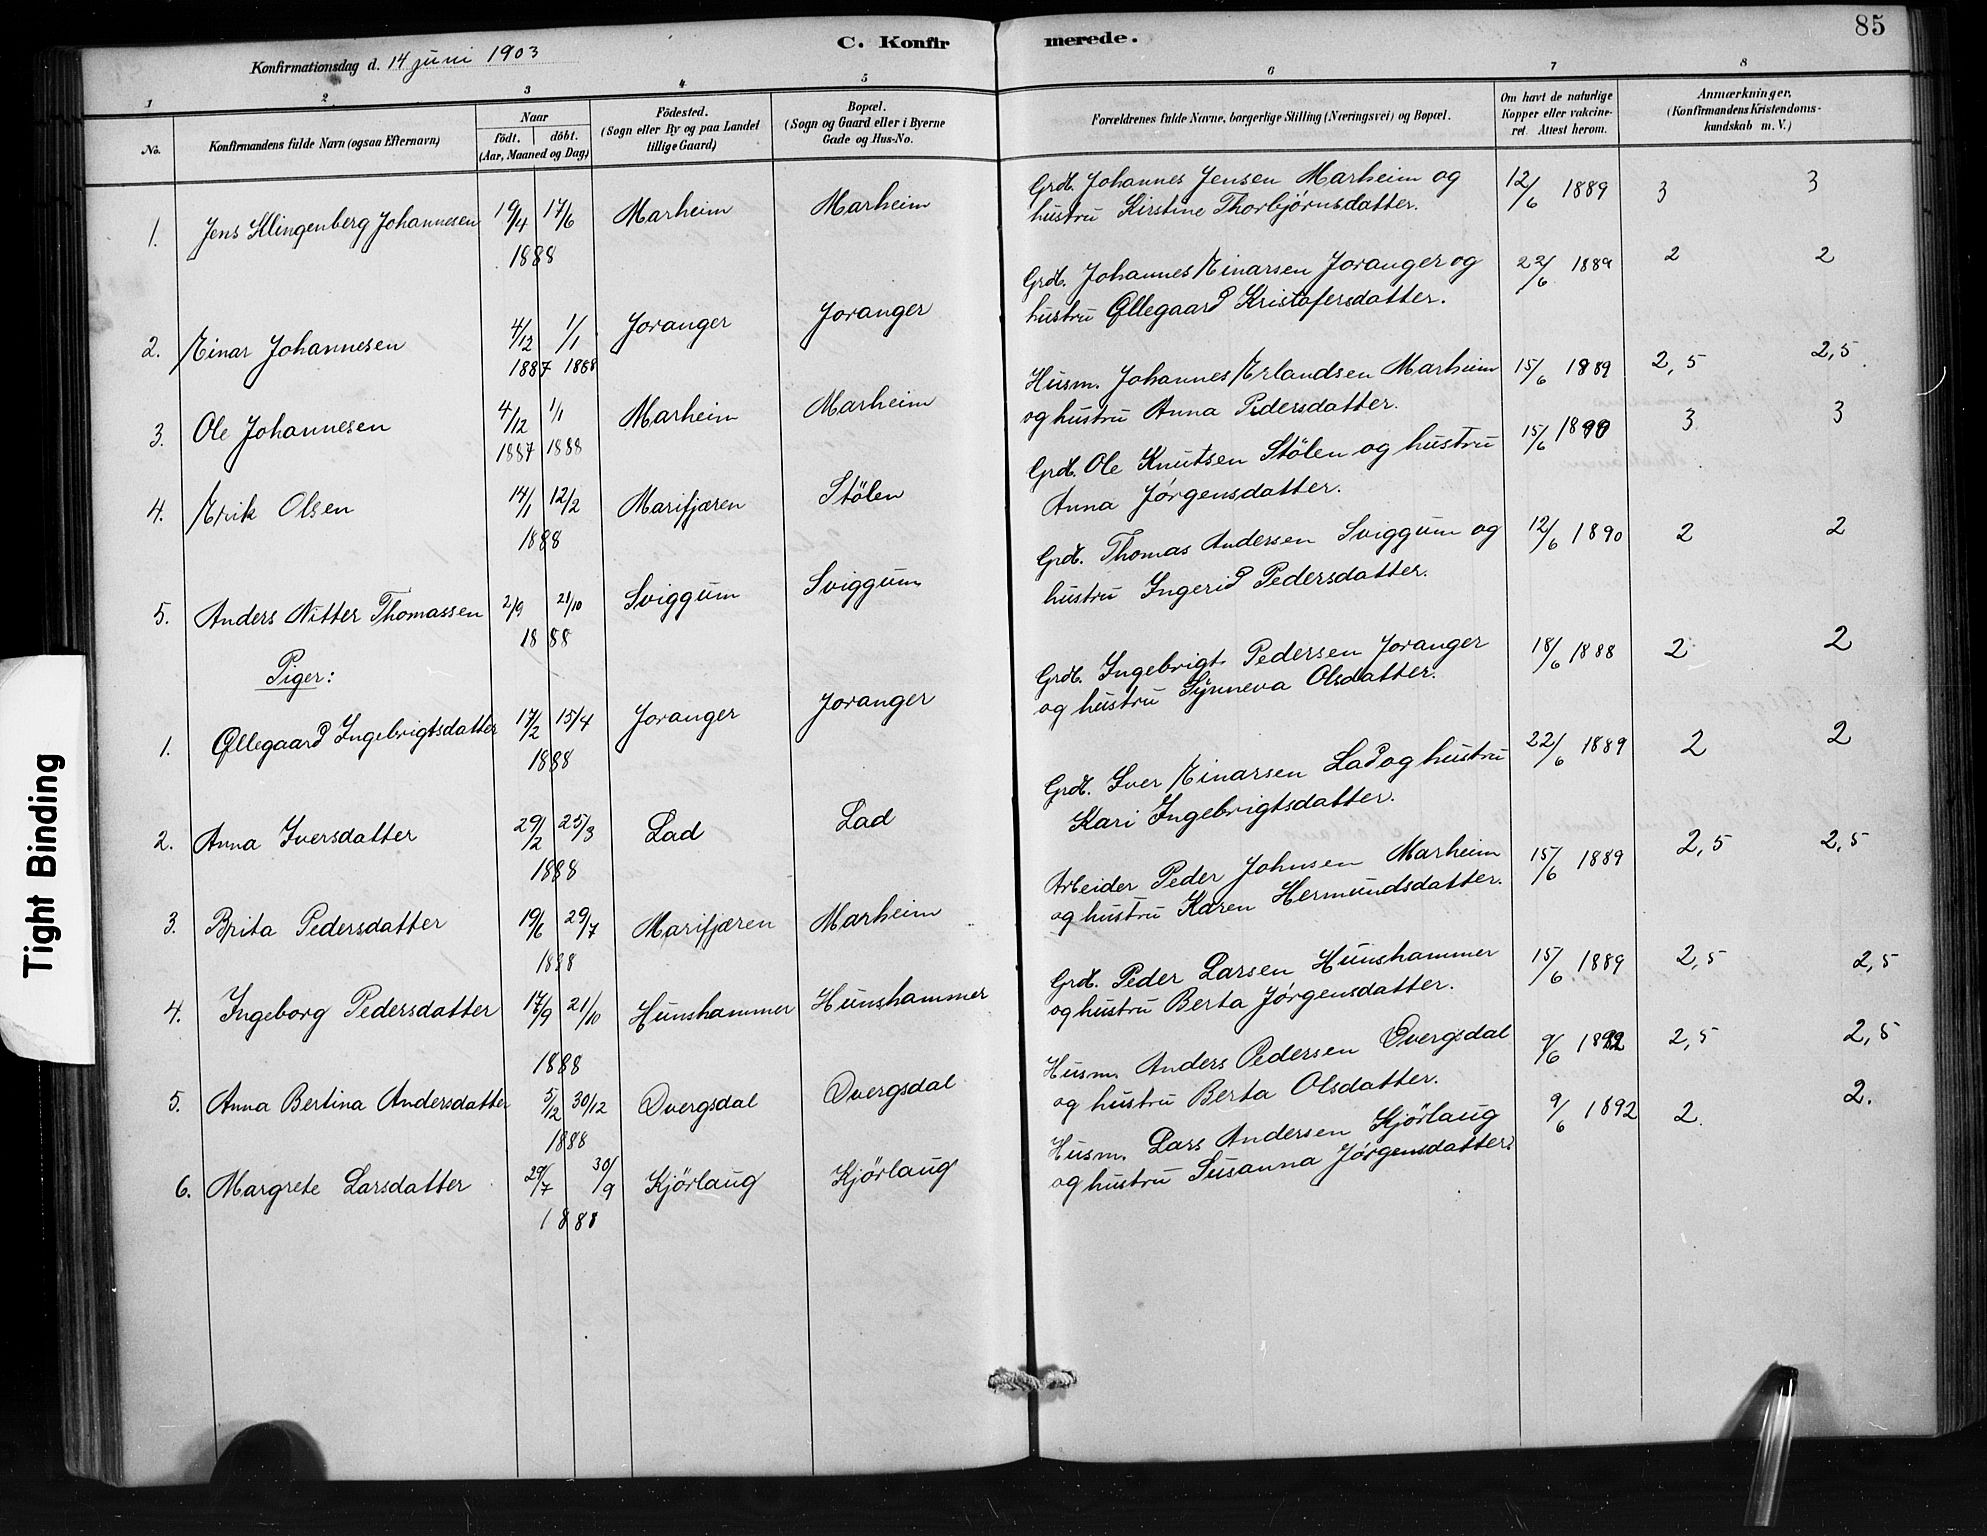 85
C. Konfirmerede.
Konfirmationsdag d. 14 juni 1903
1 2 3 4 5 6 7 8
No.
Konfirmandens fulde Navn (ogsaa Efternavn)
Naar
födt. döbt.
(Aar, Maaned og Dag)
Födested.
(Sogn eller By og paa Landet
tillige Gaard)
Bopæl.
(Sogn og Gaard eller i Byerne
Gade og Hus-No.
Forældrenes fulde Navne, borgerlige Stilling (Næringsvei) og Bopæl.
Om havt de naturlige
Kopper eller vakcine-
ret. Attest herom.
Anmærkninger.
(Konfirmandens Kristendoms-
kundskab m. V.)
1. Jens Klingenberg Johannesen 19/4 17/6 Marheim Marheim
1888
Grdb. Johannes Jensen Marheim og 12/6 1889 3 3
hustru Kirstine Thorbjørnsdatter.
2. Einar Johannesen 4/12 1/1 Joranger Joranger
1887 1888
Grdb. Johannes Einarsen Joranger og 22/6 1889 2 2
hustru Øllegaard Kristofersdatter.
3. Ole Johannesen 4/12 1/1 Marheim Marheim
1887 1888
Husm. Johannes Erlandsen Marheim 15/6 1889 2,5 2,5
og hustru Anna Pedersdatter.
4. Erik Olsen 14/1 12/2 Marifjæren Stölen
1888
Grdb. Ole Knutsen Stölen og hustru 15/6 1890 3 3
Anna Jørgensdatter.
5. Anders Nitter Thomassen 2/9 21/10 Sviggum Sviggum
1888
Grdb. Thomas Andersen Sviggum og 12/6 1890 2 2
hustru Ingerid Pedersdatter.
Piger:
1. Øllegaard Ingebrigtsdatter 17/2 15/4 Joranger Joranger
1888
Grdb. Ingebrigt Pedersen Joranger 18/6 1888 2 2
og hustru Synneva Olsdatter.
2. Anna Iversdatter 29/2 25/3 Lad Lad
1888
Grdb. Iver Einarsen Lad og hustru 22/6 1889 2 2
Kari Ingebrigtsdatter.
3. Brita Pedersdatter 19/6 29/7 Marifjæren Marheim
1888
Arbeider Peder Johnsen Marheim 15/6 1889 2,5 2,5
og hustru Karen Hermundsdatter.
4. Ingeborg Pedersdatter 17/9 21/10 Hunshammer Hunshammer
1888
Grdb. Peder Larsen Hunshammer 15/6 1889 2,5 2,5
og hustru Berta Jørgensdatter.
5. Anna Bertina Andersdatter 5/12 30/12 Dvergsdal Dvergsdal
1888
Husm. Anders Pedersen Dvergsdal 9/6 1892 2,5 2,5
og hustru Berta Olsdatter.
6. Margrete Larsdatter 29/7 30/9 Kjörlaug Kjörlaug
1888
Husm. Lars Andersen Kjörlaug 9/6 1892 2. 2.
og hustru Susanna Jørgensdatter.
Tight Binding